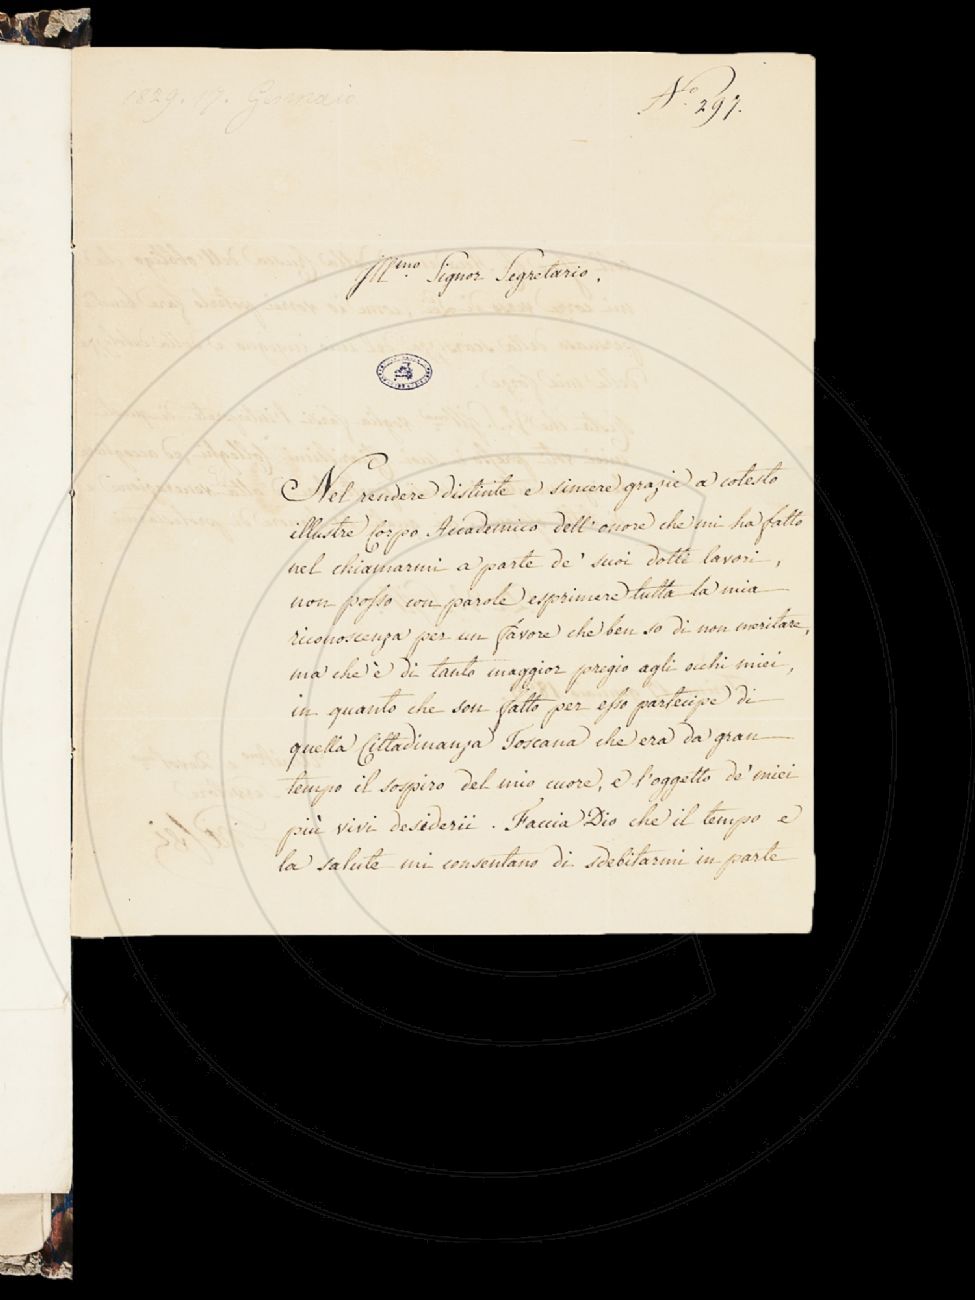 1829. 17. Gennaio
N.º 297.
Ill.mo Signor Segretario.
Nel rendere distinte e sincere grazie a cotesto
illustre Corpo Accademico dell'onore che mi ha fatto
nel chiamarmi a parte de' suoi dotti lavori,
non posso con parole esprimere tutta la mia
riconoscenza per un favore che ben so di non meritare,
ma che è di tanto maggior pregio agli occhi miei,
in quanto che son fatto per esso partecipe di
quella Cittadinanza Toscana che era da gran
tempo il sospiro del mio cuore, e l'oggetto de' miei
più vivi desiderii. Faccia Dio che il tempo e
la salute mi consentano di sdebitarmi in parte